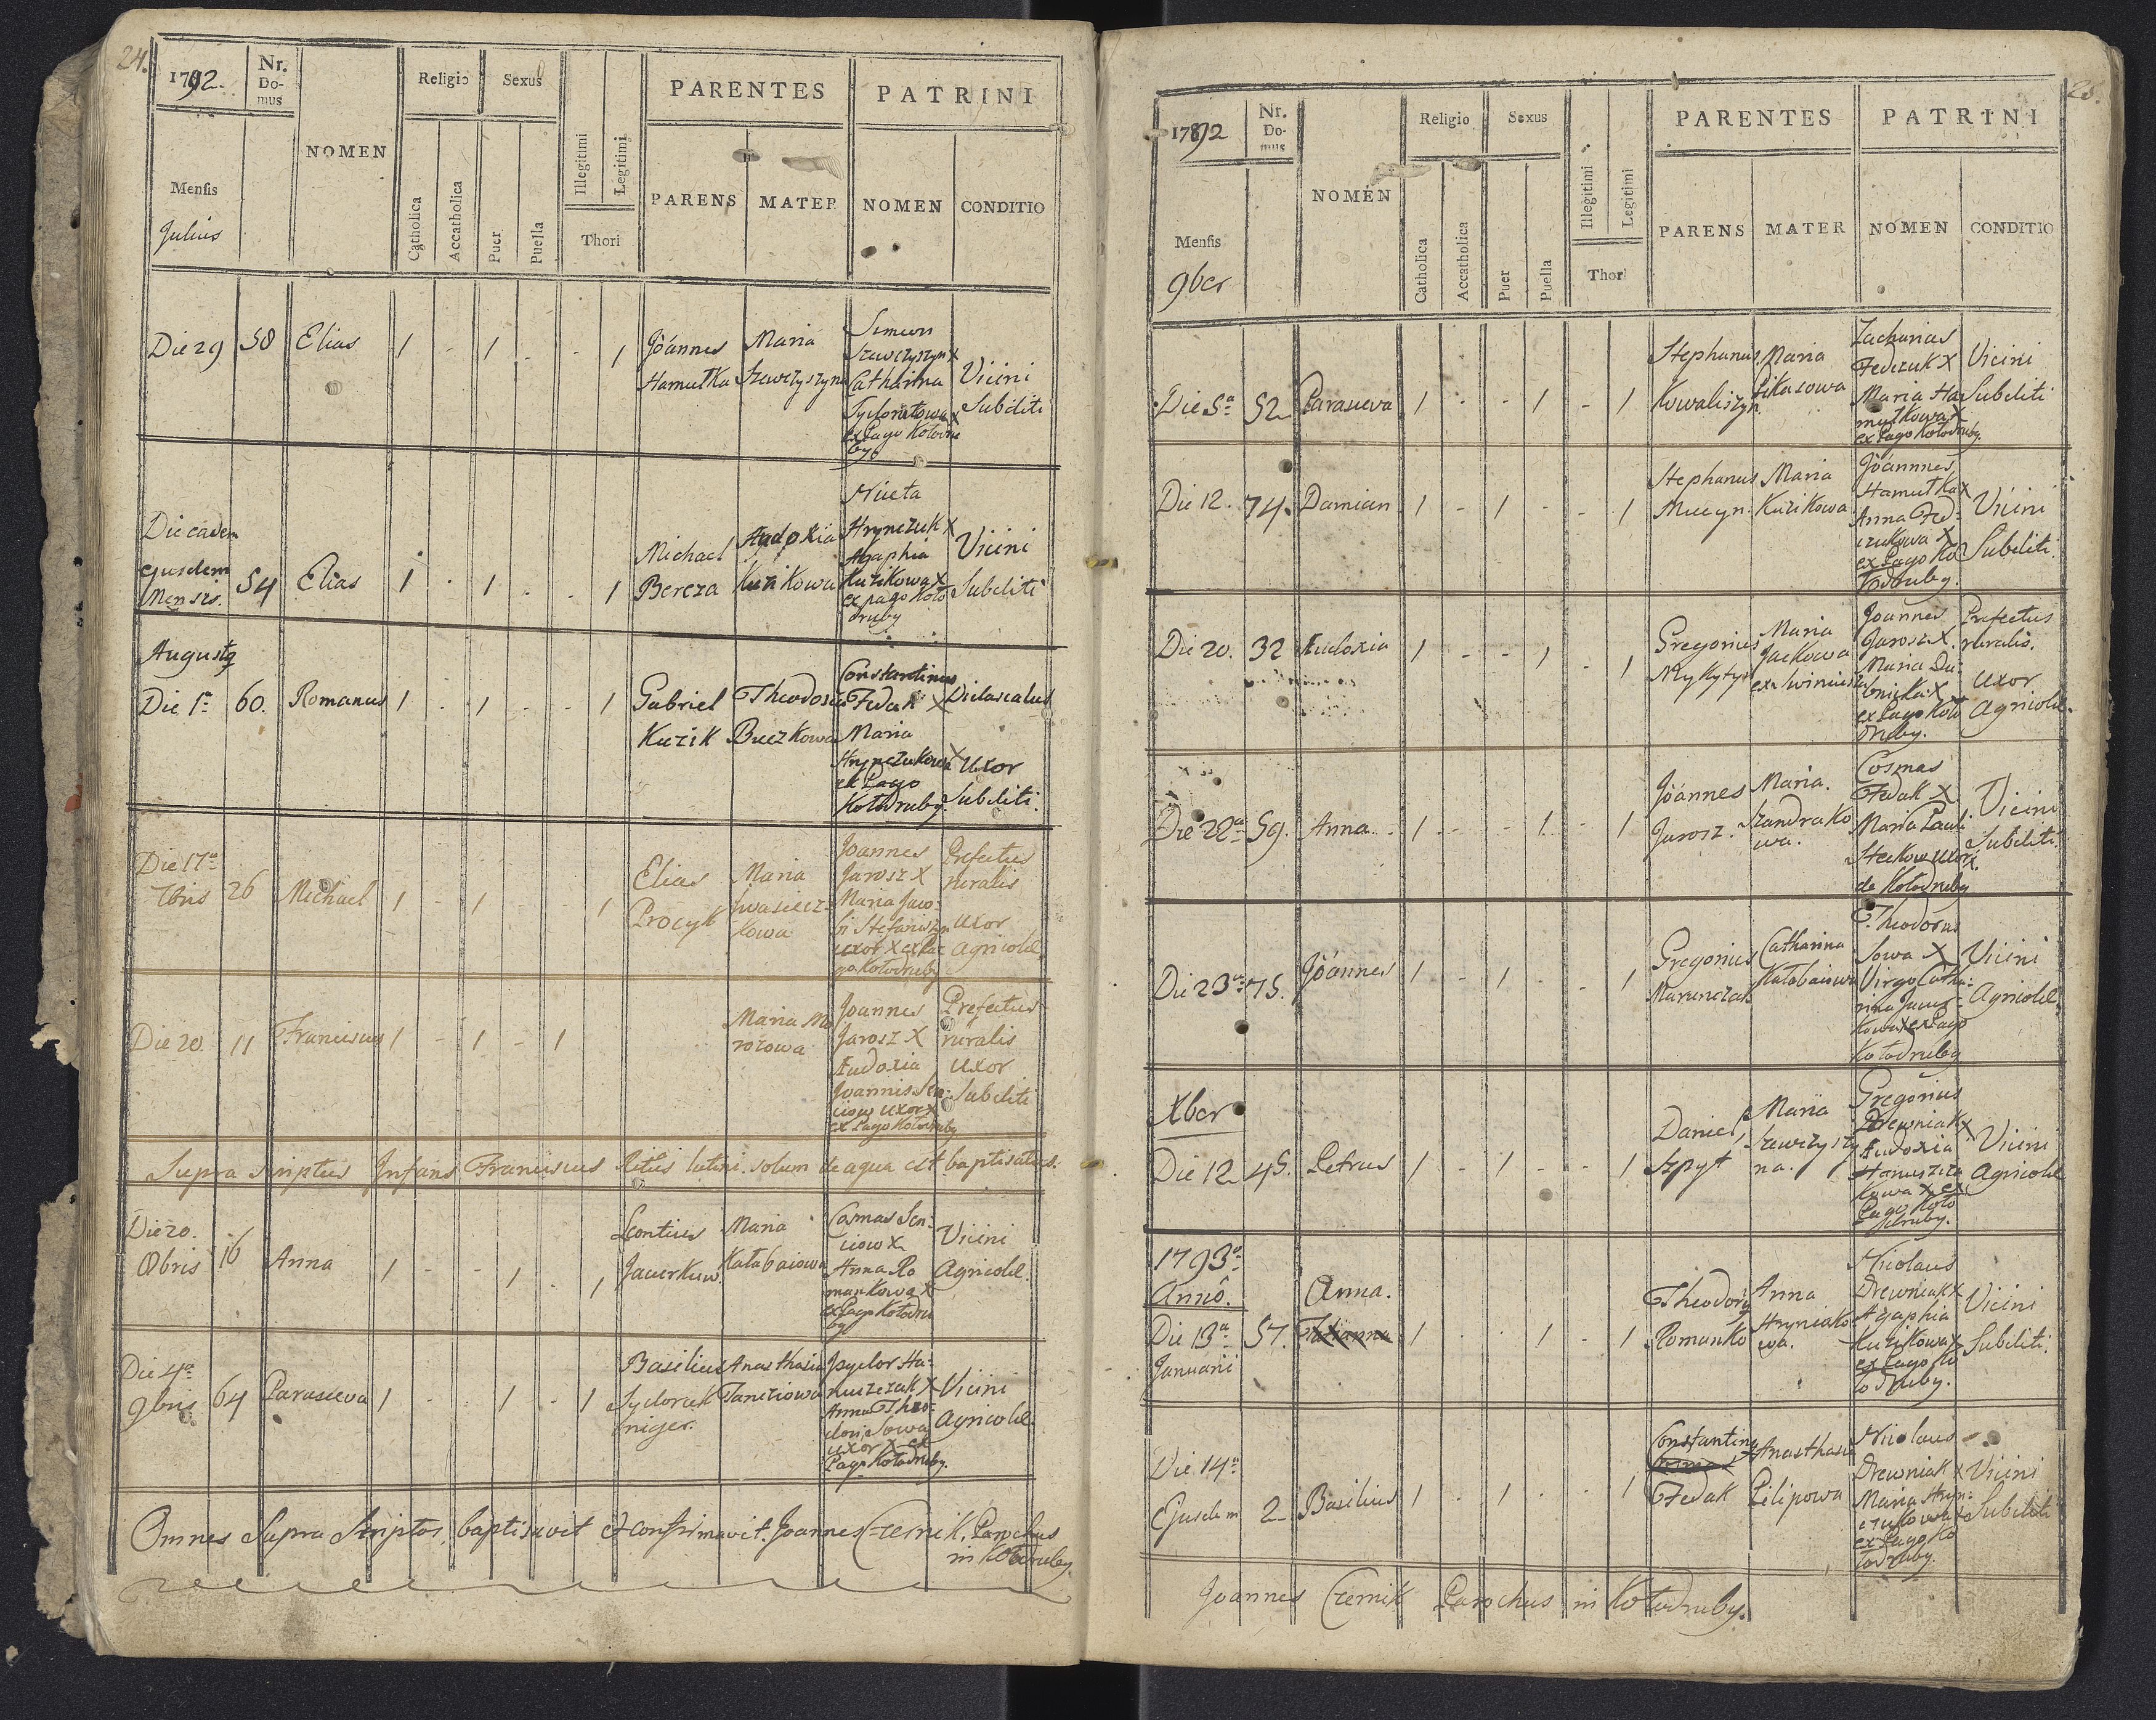 24.
1792.
Nr. Domus
NOMEN
Religio
Sexus
PARENTES
PATRINI
Mensis
Julius
Catholica
Accatholica
Puer
Puella
Illegitimi
Legitimi
Thori
PARENS
MATER
NOMEN
CONDITIO
Die 29 58 Elias 1 - 1 - - 1 Joannes Hamułka Maria Szewczyszyna
Simeon
Szewczyszyn X
Catharina
ex Pago Kołodru
by
Vicini
Subditi
Die eadem
ejusdem
Mensis. 54 Elias 1 - 1 - - 1 Michael Bereza Kuzikowa
Niceta
Hrynczuk X
Agaphia
Kuzikowa X
ex pago Koło
druby
Vicini
Subditi
Augusty
Die 1ª 60. Romanus 1 - 1 - - 1 Gabriel Kuzik Theodosia Buczkowa
Constantinus
Fedak X
Maria
Hrynczukowa X
ex Pago
Kołodruby.
Didascalus
Uxor
Subditi.
Die 17ª
7bris 26 Michael 1 - 1 - - 1 Elias Procyk Maria Iwasieczkowa
Joannes
Jarosz X
Maria Jaco=
bi Stefaniszyn
uxor X ex Pa=
go Kołodruby
Prefectus
ruralis
Uxor
Agricolæ
Die 20. 11 Franciscus 1 - 1 - 1
Maria Mo
rozowa
Joannes
Jarosz X
Eudoxia
Joannis Sen=
ciow uxor X
ex Pago Kołodruby
Prefectus
ruralis
Uxor
Subditi
Supra scriptus Infans Franciscus Ritus latini solum de aqua est baptisatus.
Die 20.
8bris 16 Anna 1 - - 1 - 1 Leontius Maria Kałabaiowa
Cosmas Sen=
ciow X
Anna Ro
mankowa X
ex Pago Kołodru
by
Vicini
Agricolæ
Die 4ª
9bris 64 Parasceva 1 - - 1 - 1 Basilius
Sydorak
niger.
Anasthasia
Anna Theo=
dori Sowa
uxor X ex
Pago Kołodruby.
Vicini
Agricolæ
Omnes Supra Scriptos baptisavit et confirmavit. Joannes Czernik, Parochus
in Kołodruby.
25.
1792
Nr. Domus
NOMEN
Religio
Sexus
PARENTES
PATRINI
Mensis
9ber
Catholica
Accatholica
Puer
Puella
Illegitimi
Legitimi
Thori
PARENS
MATER
NOMEN
CONDITIO
Die 5ª 52 Parasceva 1 - - 1 - 1 Stephanus Kowaliszyn Maria
Zacharias
Fedczuk X
Maria Ha
mułkowa X
ex Pago Kołodruby.
Vicini
Subditi
Die 12. 74. Damian 1 - 1 - - 1 Stephanus Mucyn Maria Kuzikowa
Joannnes
Hamułka X
Anna Fed=
czukowa X
ex Pago Ko
łodruby.
Vicini
Subditi.
Die 20. 32 Eudoxia 1 - - 1 - 1 Gregorius Mykytyn Maria Jackowa
Joannes
Jarosz X
Maria Du=
bnicka X
ex Pago Koło
druby.
Prefectus
ruralis.
Uxor
Agricolæ.
Die 22ª 59. Anna 1 - - 1 - 1 Joannes Jarosz. Maria. Szandrako
wa.
Cosmas
Fedak X
Maria Pauli
Steckow uxor X
de Kołodruby
Vicini
Subditi
Die 23ª 75. Joannes 1 - 1 - - 1 Gregorius Marunczak Catharina Kałabaiowa
Theodorus
Sowa X
Virgo Catha=
rina
kowa X ex Pago
Kołodruby
Vicini
Agricolæ
Xber
Die 12 45. Petrus 1 - 1 - - 1 Daniel Szpyt Maria Szewczyszy
na.
Gregorius
Drewniak X
Eudoxia
Hanuszcza
kowa X ex
Pago Koło
druby.
Vicini
Agricolæ
1793ª
Anno.
Die 13ª 57. Anna. 1 - - 1 - 1 Theodorus Romanko Anna Hryniako
wa.
Januarii
Nicolaus
Drewniak X
Agaphia
Kuzikowa X
ex Pago Ko
łodruby.
Vicini
Subditi.
Die 14ª
Ejusdem 2 Basilius 1 - 1 - - 1 Constantinus Fedak Anasthasia Pilipowa
Nicolaus
Drewniak X
Maria Hryn=
czukowa X
ex Pago Ko
łodruby.
Vicini
Subditi
Joannes Czernik Parochus in Kołodruby.